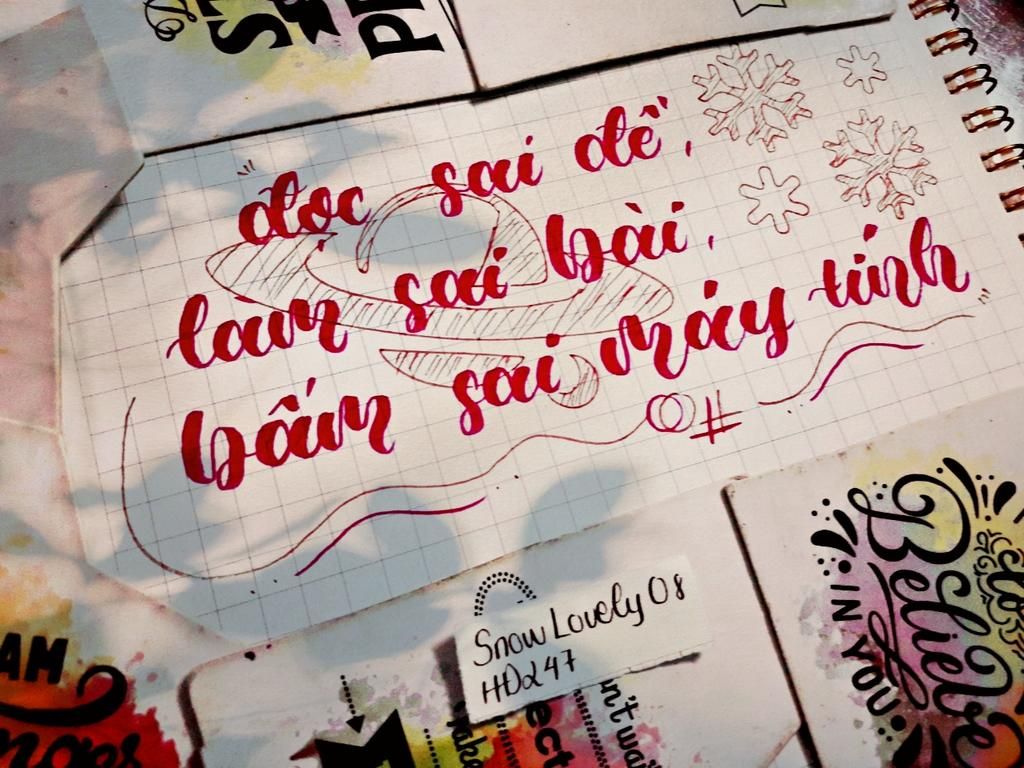 "đọc sai đề,
làm sai bài,
bấm sai máy tính"
#
Snow Lovely 08
HD247
Believe
IN YOU
AM